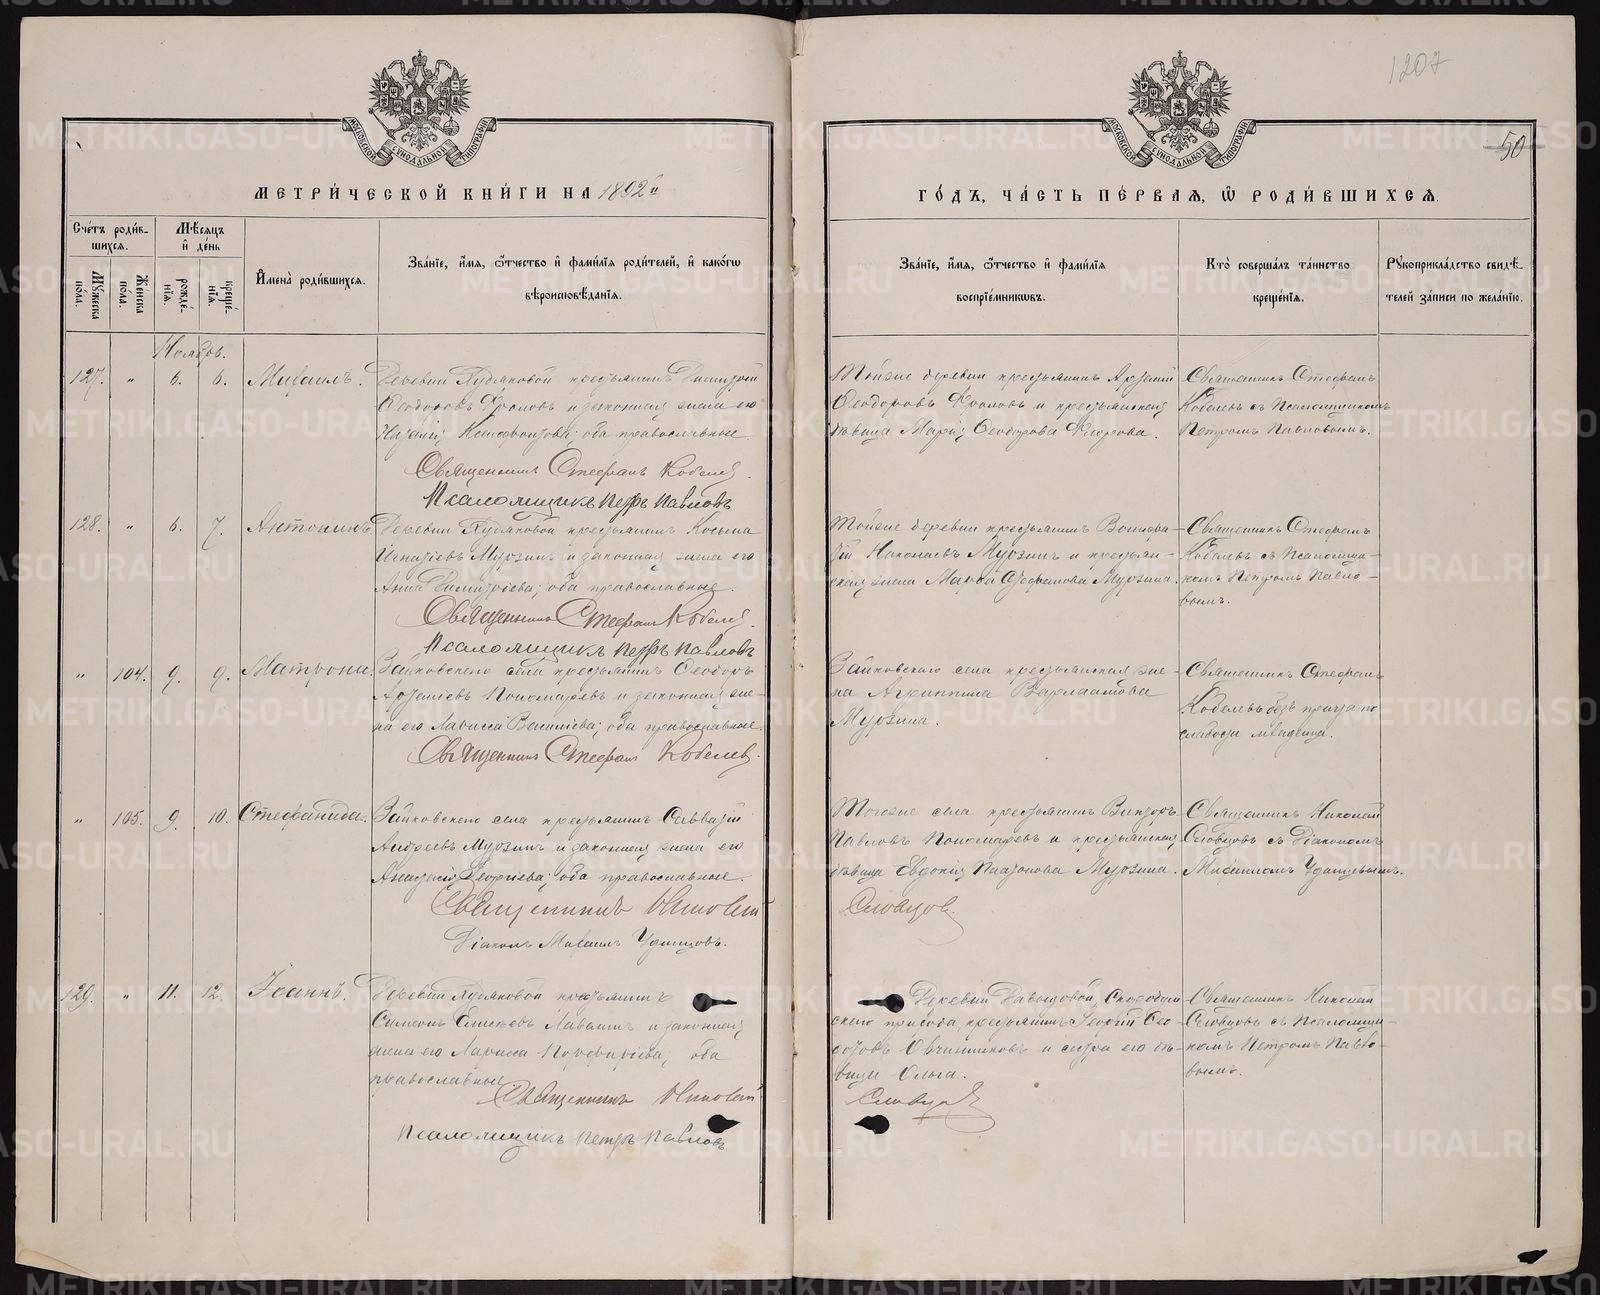 1207
50
МОСКОВСКОЙ СѴНОДАЛЬНОЙ ТИПОГРАФІИ
МЕТРИ́ЧЕСКОЙ КНИ́ГИ НА 1892й
МОСКОВСКОЙ СѴНОДАЛЬНОЙ ТИПОГРАФІИ
ГО́ДЪ, ЧА́СТЬ ПЕ́РВАЯ, Ѿ РОДИ́ВШИХСЯ.
Сче́тъ роди́в-
шихся.
Мужеска пола.
Женска пола.
Мѣсяцъ
и де́нь
рожде́-
нія.
креще́-
нія.
Имена̀ роди́вшихся.
Зва́ніе, и́мя, ѻ́тчество и фами́лія роди́телей, и како́гѡ
вѣроисповѣ́данія.
Зва́ніе, и́мя, ѻ́тчество и фами́лія
воспріе́мниковъ.
Кто̀ соверша́лъ та́инство
креще́нія.
Рукоприкла́дство свидѣ́-
телей за́писи по жела́нію.
Ноябрь.
127. " 6. 6. Михаилъ.
Деревни крестьянинъ Димитрій
Ѳеодоровъ Фроловъ и законная жена его
оба православные.
Священникъ Стефанъ Кобелев
Псаломщикъ Петръ Павловъ
Тойже деревни крестьянинъ
Ѳеодоровъ Фроловъ и крестьянская
дѣвица Ѳеодорова
Священникъ Стефанъ
Кобелевъ съ Псаломщикомъ
Петромъ Павловымъ.
128. " 6. 7. Антонинъ
Деревни крестьянинъ Косьма
Игнатіевъ Мурзинъ и законная жена его
Анна Димитріева; оба православные.
Священникъ Стефанъ Кобелев.
Псаломщикъ Петръ Павловъ
Тойже деревни крестьянинъ
Николаевъ Мурзинъ и крестьян-
ская жена Стефанова Мурзина.
Священникъ Стефанъ
Кобелевъ съ Псаломщи-
комъ Петромъ Павло-
вымъ.
" 104. 9. 9. Матрона.
Зайковскаго села крестьянинъ Ѳеодоръ
Пономаревъ и законная же-
на его Лариса Васильева; оба православные.
Священникъ Стефанъ Кобелев.
Зайковскаго села крестьянская же-
на Агриппина Варлаамова
Мурзина.
Священникъ Стефанъ
Кобелевъ безъ причта по
слабости младенца.
" 105. 9. 10. Стефанида.
Зайковскаго села крестьянинъ Савватій
Андреевъ Мурзинъ и законная жена его
Анастасія Георгіева; оба православные.
Священникъ Николай
Діаконъ Михаилъ Удинцовъ.
Тогоже села крестьянинъ Викторъ
Павловъ Пономаревъ и крестьянская
дѣвица Евдокія Платонова Мурзина.
Словцов.
Священникъ Николай
Словцовъ съ Діакономъ
Михаиломъ Удинцевымъ.
129. " 11. 12. Іоаннъ.
Деревни крестьянинъ
Симеонъ и законная
жена его Лариса Порфиріева; оба
православные
Священникъ Николай
Псаломщикъ Петръ Павловъ
Деревни Давыдовой,
скаго прихода, крестьянинъ Георгій Ѳео-
Овчинниковъ и сестра его дѣ-
вица Ольга.
Словцов
Священникъ Николай
Словцовъ съ Псаломщи-
комъ Петромъ Павло-
вымъ.
METRIKI.GASO-URAL.RU